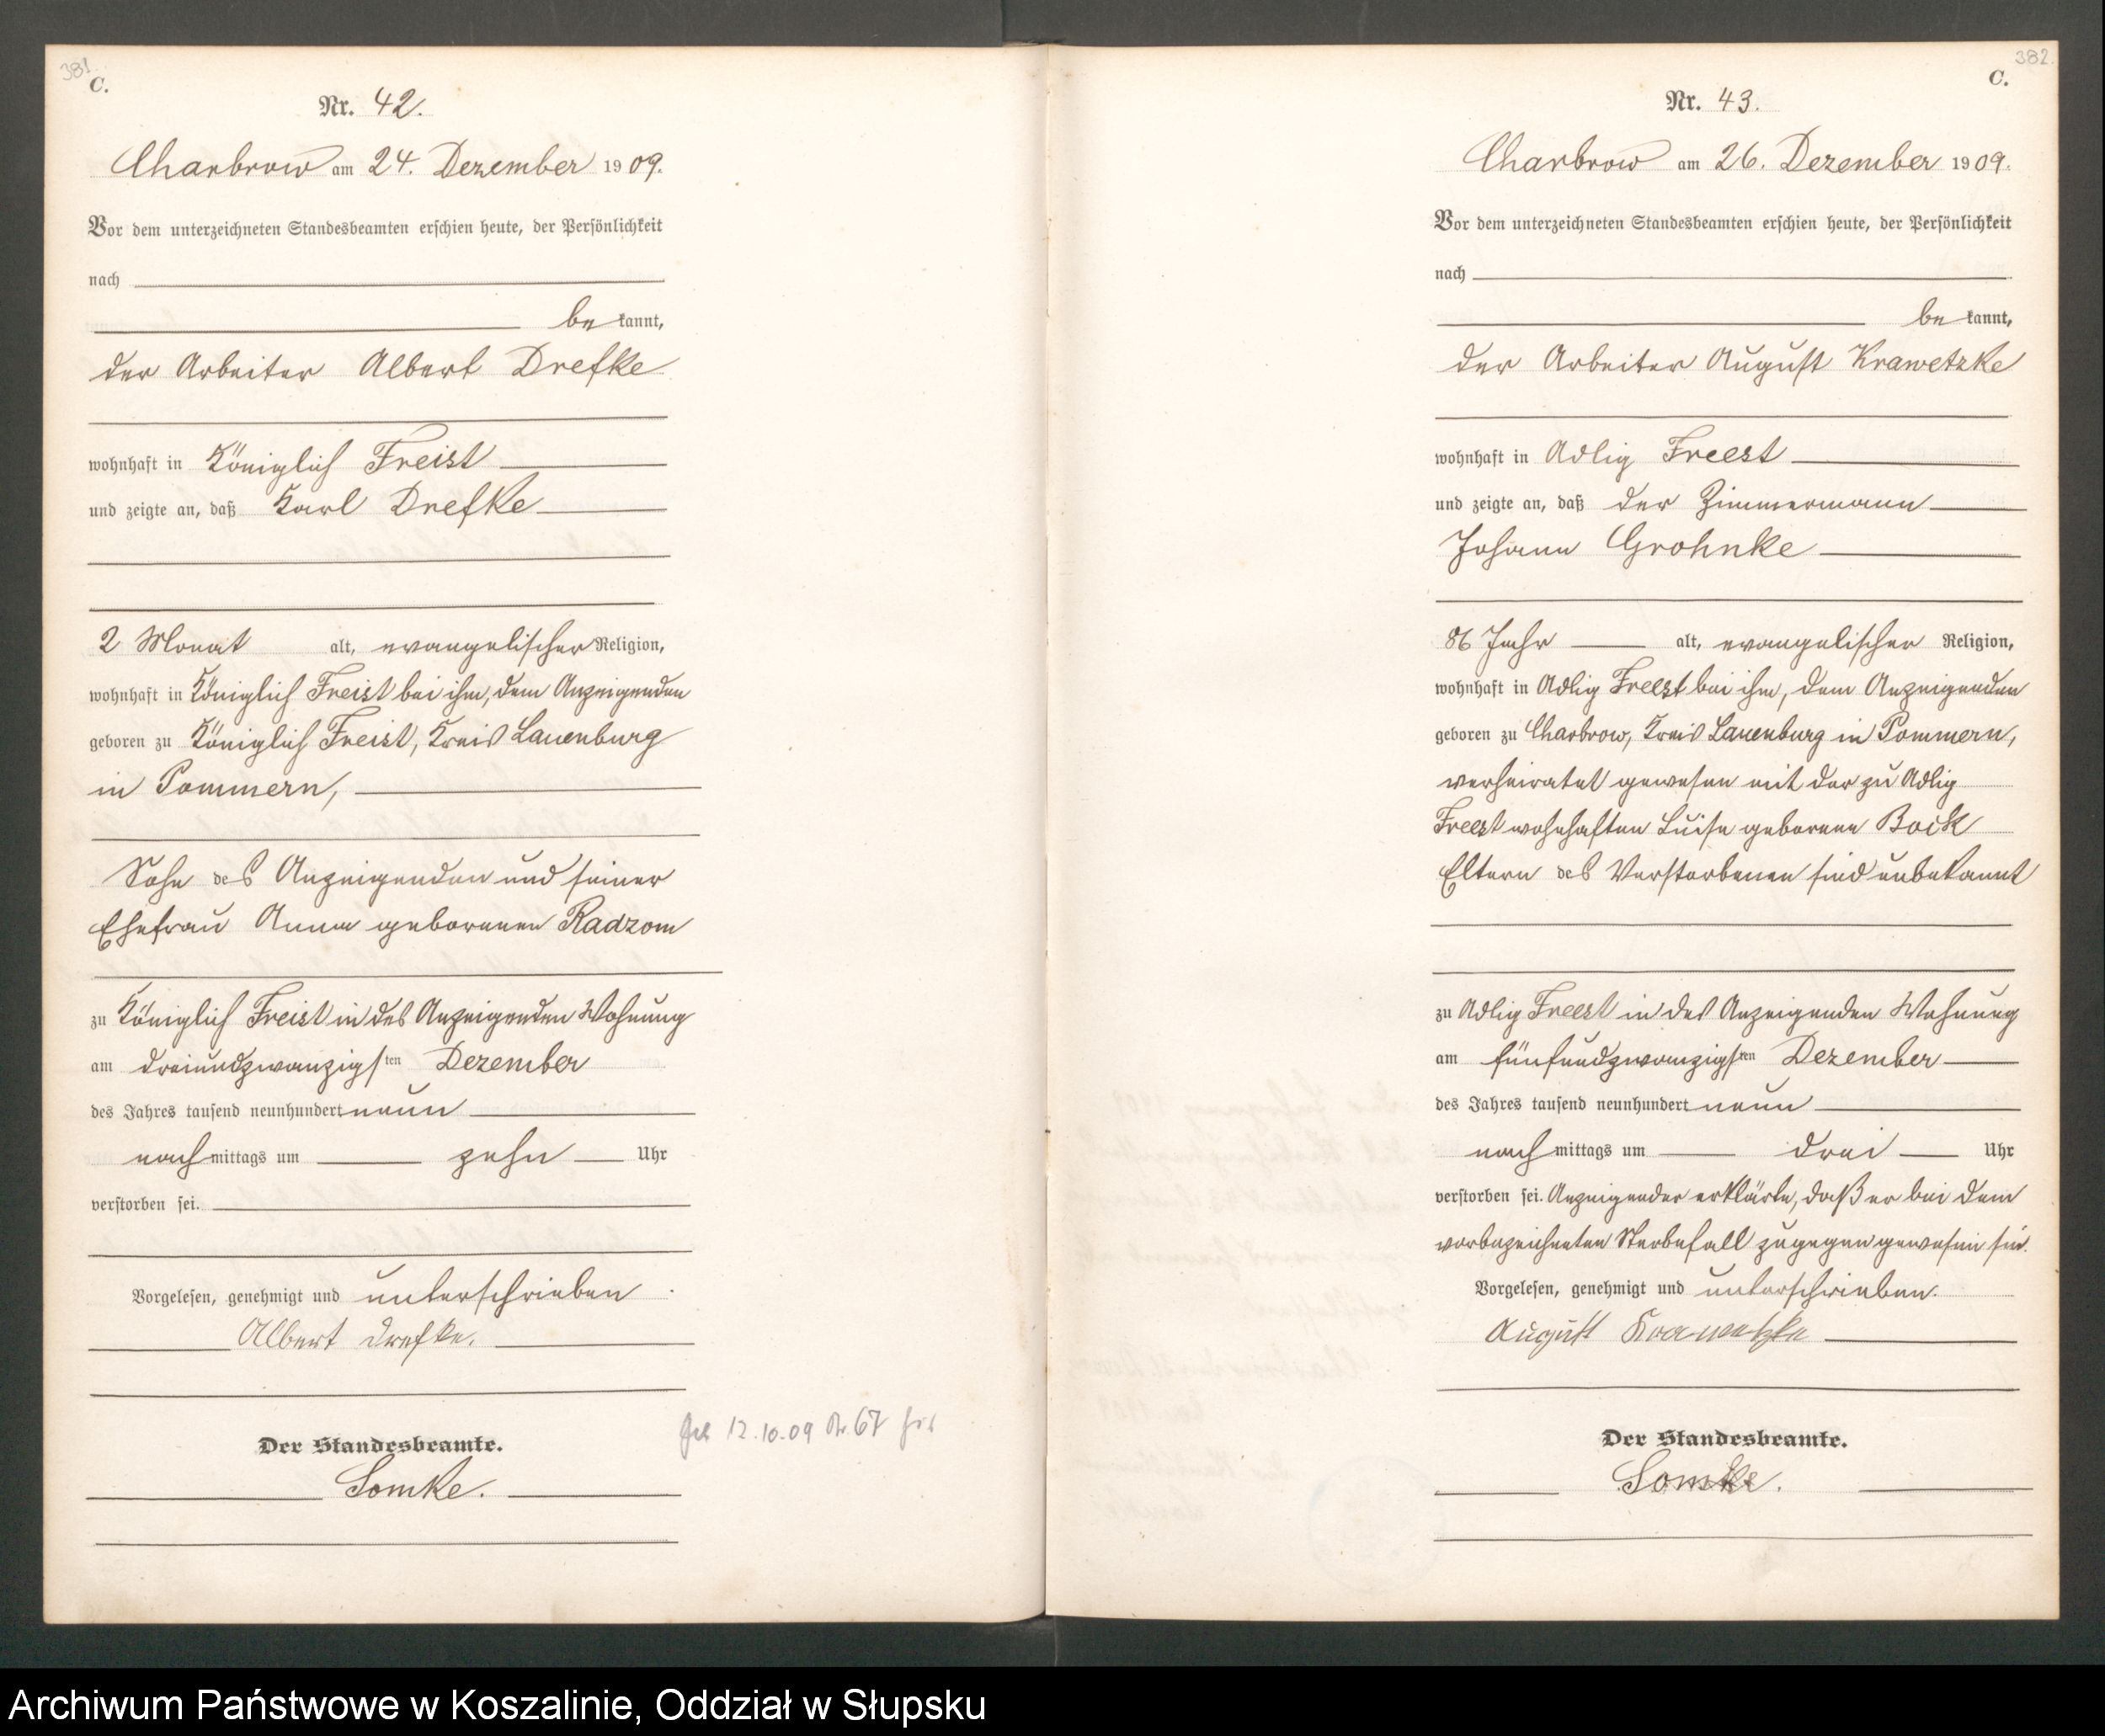 381.
C.
Nr. 42.
Charbrow am 24. Dezember 1909.
Vor dem unterzeichneten Standesbeamten erschien heute, der Persönlichkeit
nach
be kannt,
der Arbeiter Albert Drefke
wohnhaft in Königlich Freist
und zeigte an, daß Karl Drefke
2 Monat alt, evangelischer Religion,
wohnhaft in Königlich Freist bei ihm, dem Anzeigenden
geboren zu Königlich Freist, Kreis Lauenburg
in Pommern,
Sohn des Anzeigenden und seiner
Ehefrau Anna geborenen Radzom
zu Königlich Freist in des Anzeigenden Wohnung
am dreiundzwanzigsten Dezember
des Jahres tausend neunhundert neun
nachmittags um zehn Uhr
verstorben sei.
Vorgelesen, genehmigt und unterschrieben
Albert Drefke.
Der Standesbeamte.
Somke.
12.10.09 Nr. 67
382.
C.
Nr. 43.
Charbrow am 26. Dezember 1909.
Vor dem unterzeichneten Standesbeamten erschien heute, der Persönlichkeit
nach
be kannt,
der Arbeiter August Krawetzke
wohnhaft in Adlig Freest
und zeigte an, daß der Zimmermann
Johann Grohnke
86 Jahr alt, evangelischer Religion,
wohnhaft in Adlig Freest bei ihm, dem Anzeigenden
geboren zu Charbrow, Kreis Lauenburg in Pommern,
verheiratet gewesen mit der zu Adlig
Freest wohnhaften Luise geborene Bock
Eltern des Verstorbenen sind unbekannt
zu Adlig Freest in des Anzeigenden Wohnung
am fünfundzwanzigsten Dezember
des Jahres tausend neunhundert neun
nachmittags um drei Uhr
verstorben sei. Anzeigender erklärte, daß er bei dem
vorbezeichneten Sterbefall zugegen gewesen sei.
Vorgelesen, genehmigt und unterschrieben.
August Krawetzke
Der Standesbeamte.
Somke.
Archiwum Państwowe w Koszalinie, Oddział w Słupsku